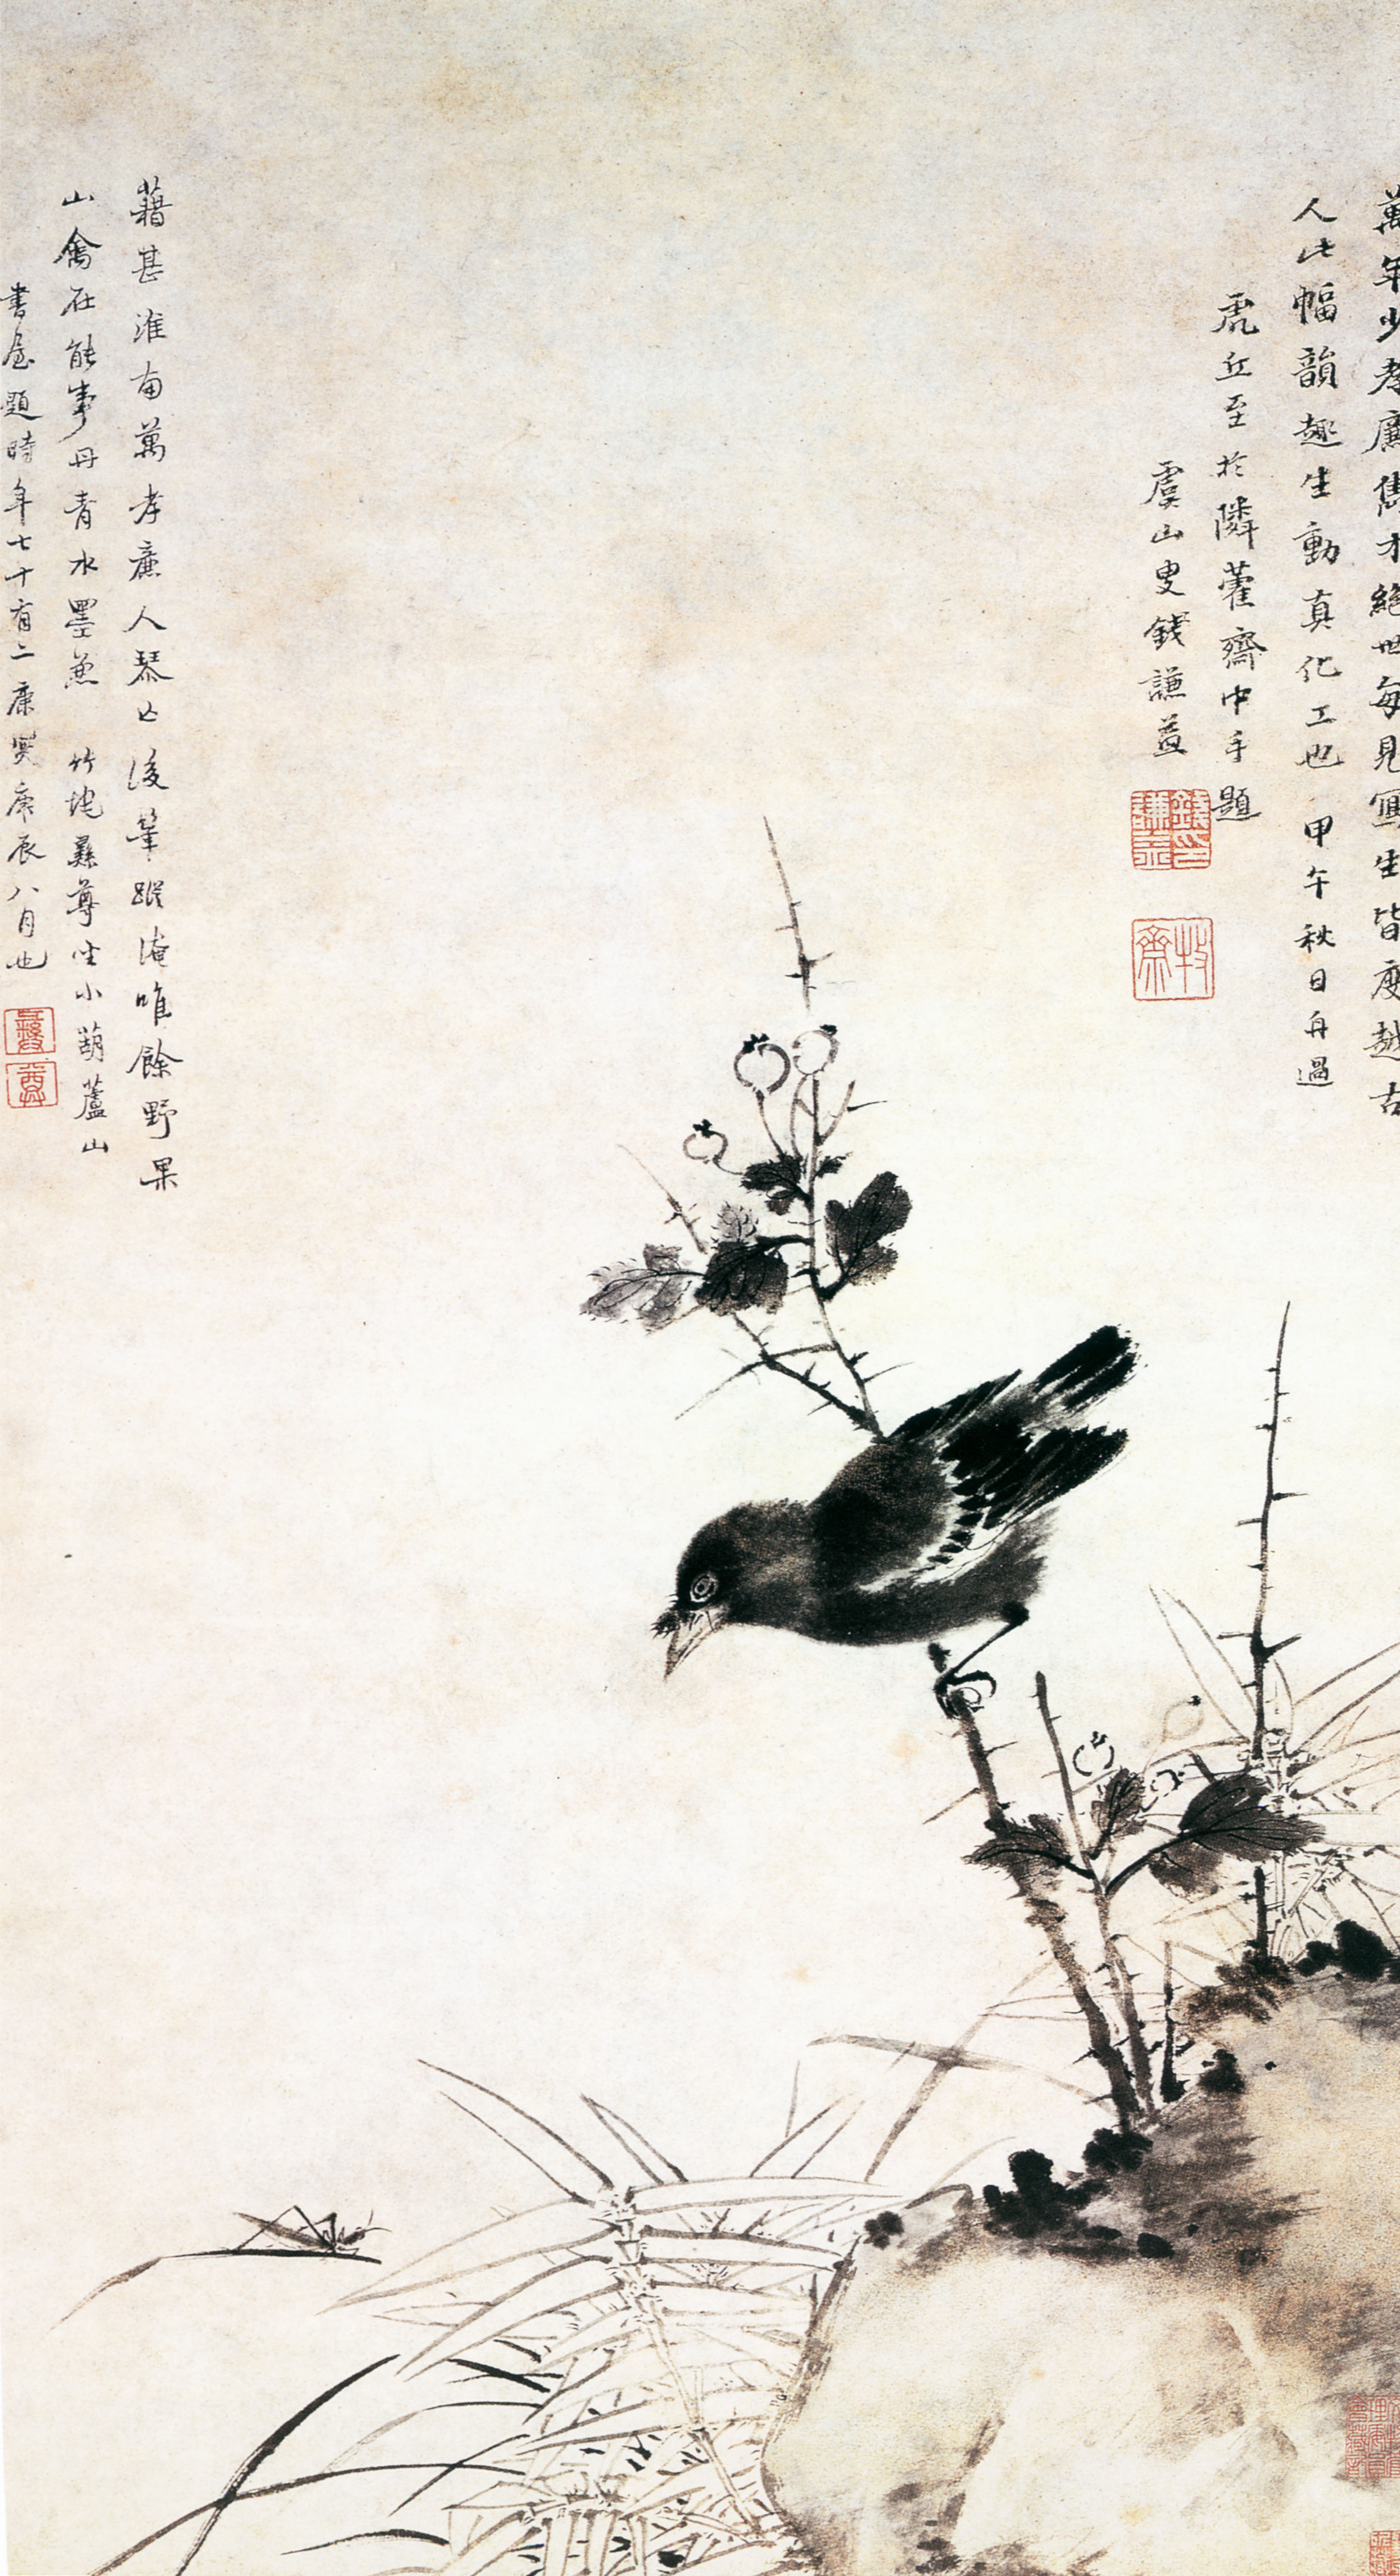 萬年少孝廉雋才絕世每見寫生皆度越古
人此幅韻趣生動真化工也 甲午秋日舟過
虎丘至於隣藿齋中手題
虞山叟錢謙益
錢謙益印
牧齋
藉甚淮南萬孝廉人琴亡後筆蹤淹唯餘野果
山禽在能事丹青水墨兼 竹垞彝尊坐小葫蘆山
書屋題時年七十有二康熙庚辰八月也
彝尊